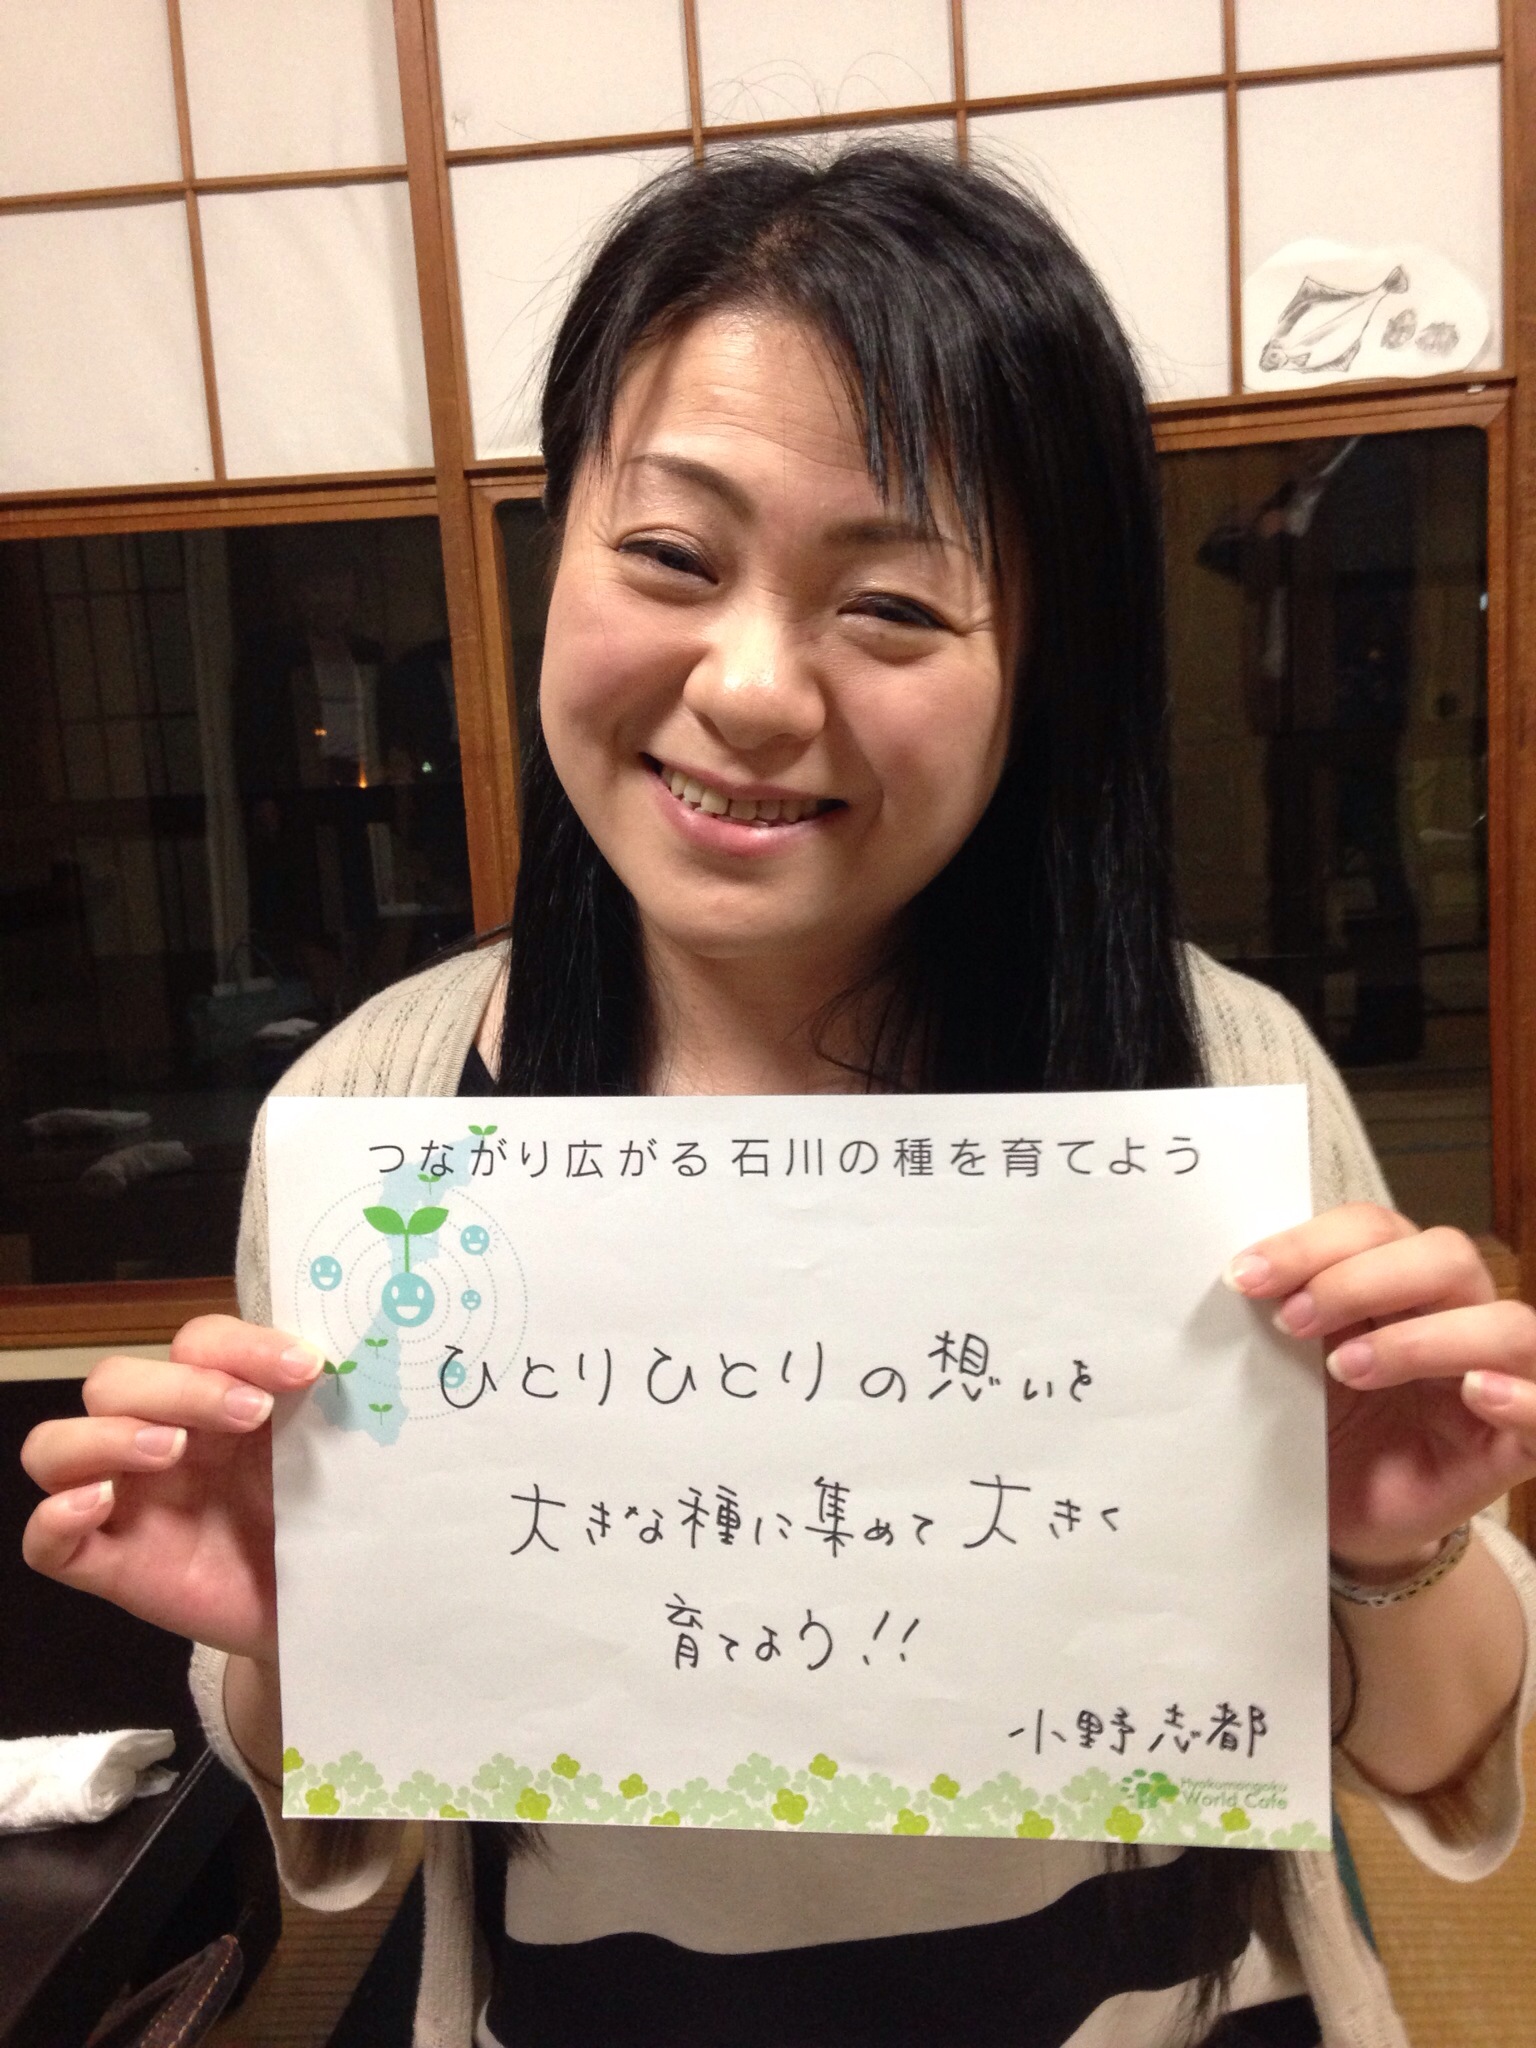 つながり広がる 石川の種を育てよう
ひとりひとりの想いを
大きな種に集めて大きく
育てよう!!
小野志都
Hyakumangoku
World Cafe